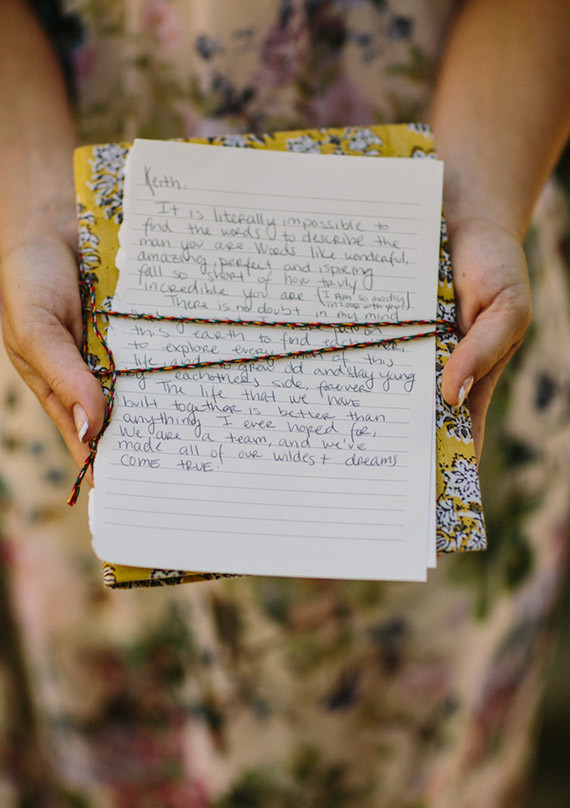 Keith,
It is literally impossible to
find the words to describe the
man you are. Words like wonderful,
amazing, perfect and ispiring
fall so short of how truly
incredible you are (I am so madly
in love with you)
There is no doubt in my mind
this earth to find eachother,
to explore every of this
life and to grow old and stay young
by eachothers side forever.
The life that we have
built together is better than
anything I ever hoped for,
We are a team, and we've
made all of our wildest dreams
COME TRUE.